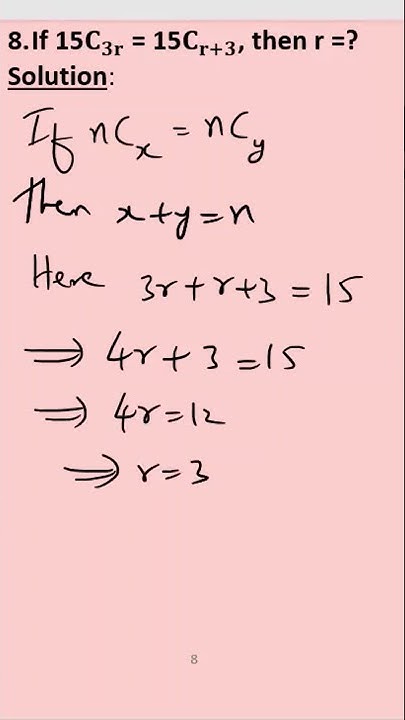 8.If 15C₃ᵣ = 15Cᵣ₊₃, then r =?
Solution:
If nCₓ = nCᵧ
Then x+y=n
Here 3r+r+3 = 15
⟹ 4r+3 =15
⟹ 4r=12
⟹ r=3
8